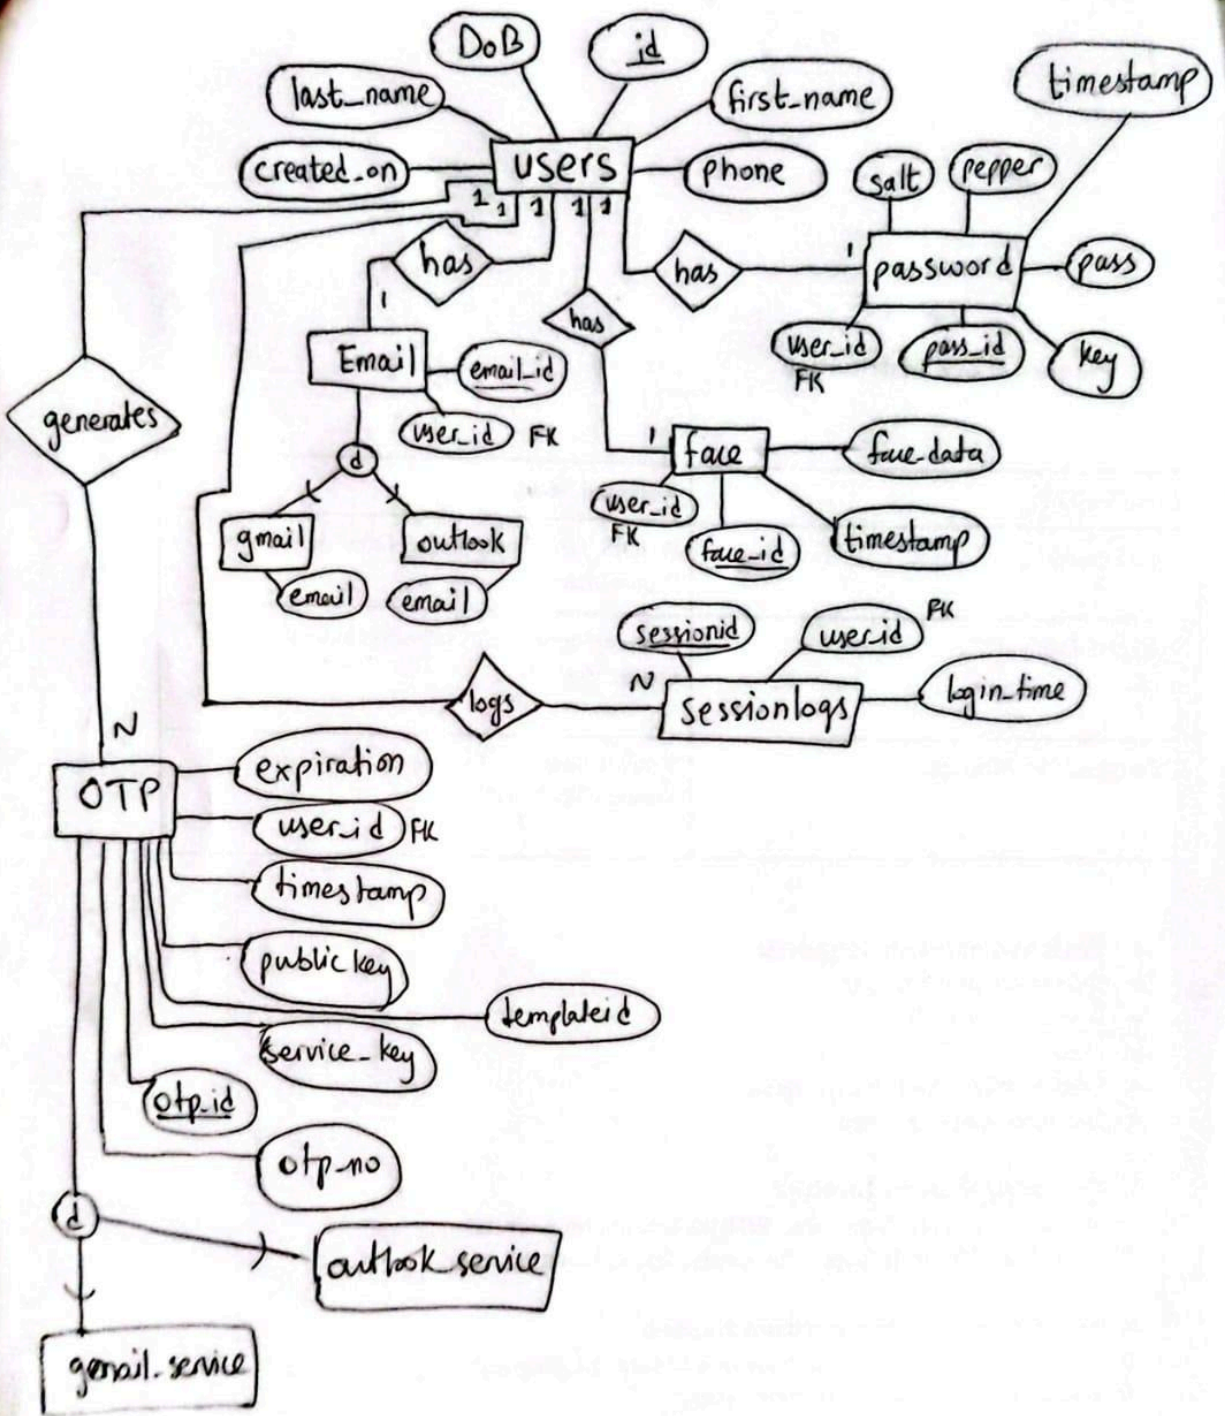 DoB
id
last_name
first_name
timestamp
created_on
users
phone
salt
pepper
1
1
1
1
1
has
has
1
password
pass
1
has
user_id
FK
pass_id
key
Email
email_id
user_id FK
generates
1
face
face_data
d
user_id
FK
face_id
timestamp
gmail
outlook
email
email
sessionid
user_id
FK
logs
N
sessionlogs
login_time
N
OTP
expiration
user_id FK
timestamp
public key
templateid
service_key
otp_id
otp_no
d
outlook_service
gmail_service